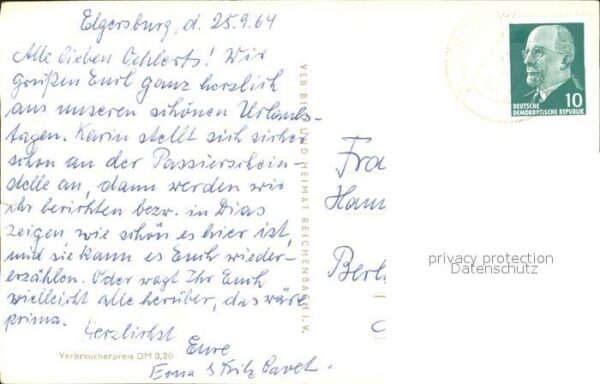 Elgersburg, d. 25.9.64
Alle lieben Oehlerts! Wir
grüßen Euch ganz herzlich
aus unseren schönen Urlaubs-
tagen. Karin stellt sich sicher
schon an der Passierschein-
stelle an, dann werden wir
ihr berichten bezw. in Dias
zeigen wie schön es hier ist,
und sie kann es Euch wieder-
erzählen. Oder wagt Ihr Euch
vielleicht alle herüber, das wäre
prima.
Herzlichst
Eure
Erna & Fritz
Verbraucherpreis DM 0,20
VEB BILD UND HEIMAT REICHENBACH I. V.
10
DEUTSCHE
DEMOKRATISCHE REPUBLIK
Fra
Hann
Berl
privacy protection
Datenschutz